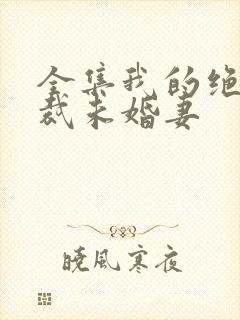 全集我的绝
裁未婚妻
晓风寒夜